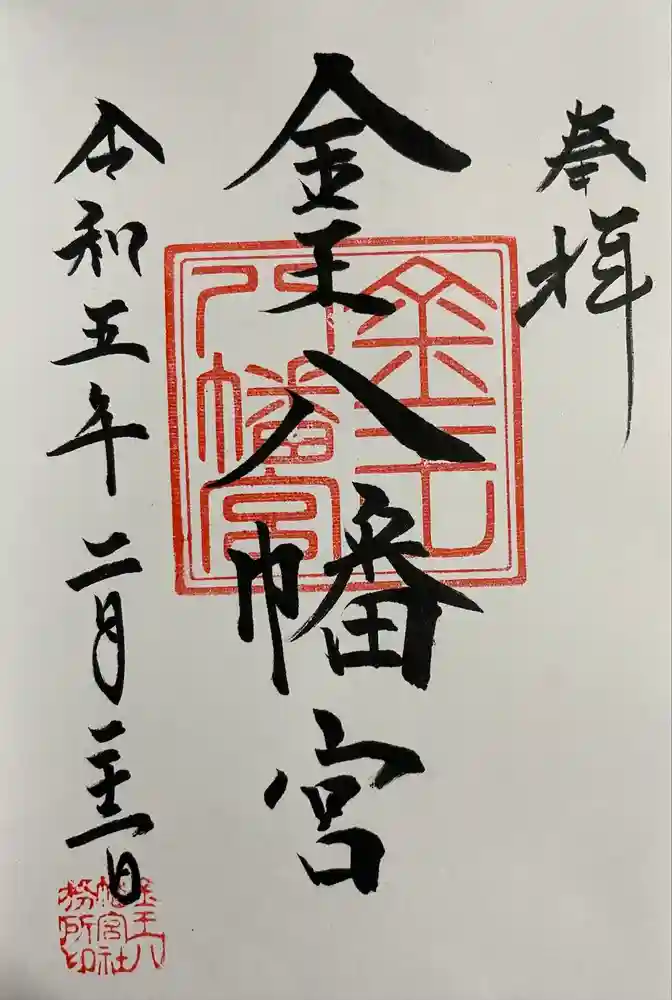 奉拝
金王八幡宮
令和五年二月二十三日
金王
八幡宮
金王八
幡宮社
務所印